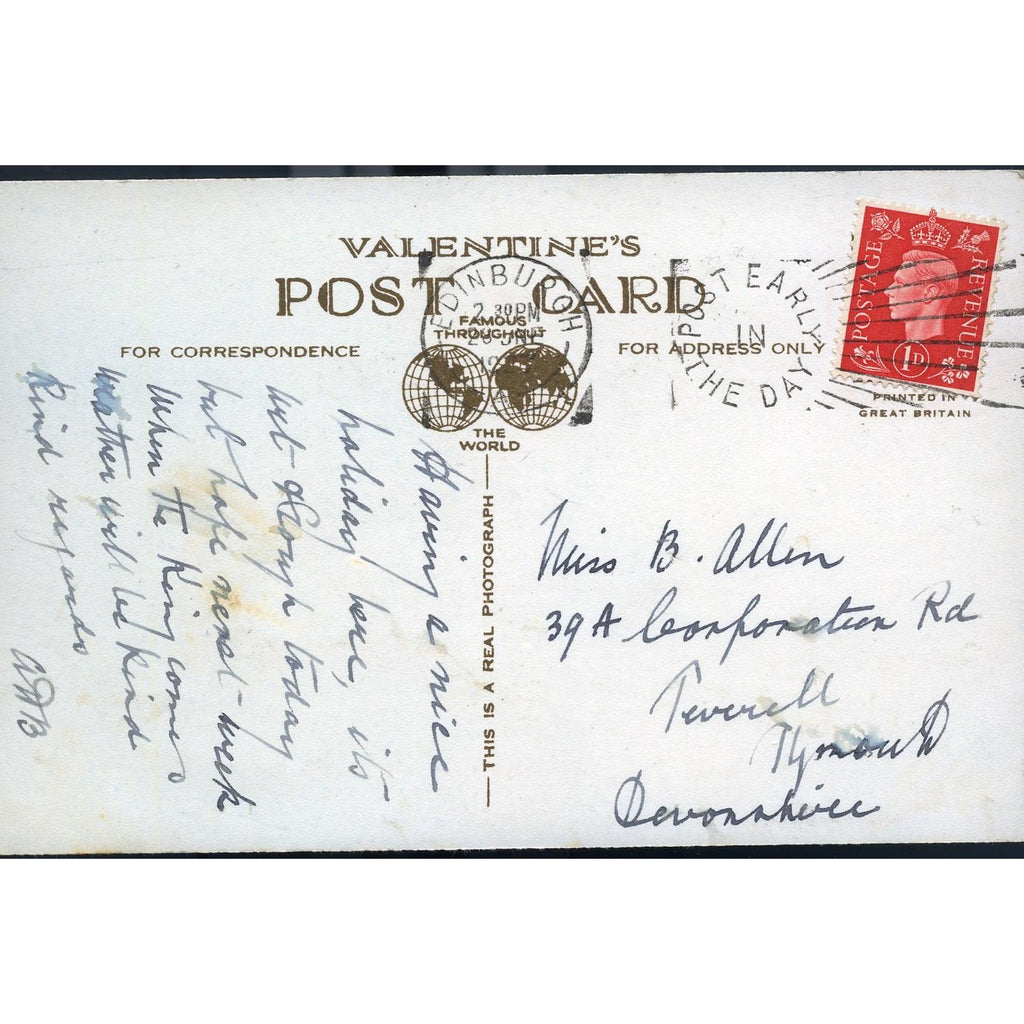 VALENTINE'S
POST CARD
FAMOUS
THROUGHOUT
THE
WORLD
FOR CORRESPONDENCE
FOR ADDRESS ONLY
EDINBURGH
2 30 PM
POST EARLY
IN
THE DAY
POSTAGE
REVENUE
1D
PRINTED IN
GREAT BRITAIN
THIS IS A REAL PHOTOGRAPH
Having a nice
holiday here, its
wet though today
but hope next week
when the King comes
weather will be kind
Kind regards
Miss B. Allen
39A Corporation Rd
Peverell
Plymouth
Devonshire